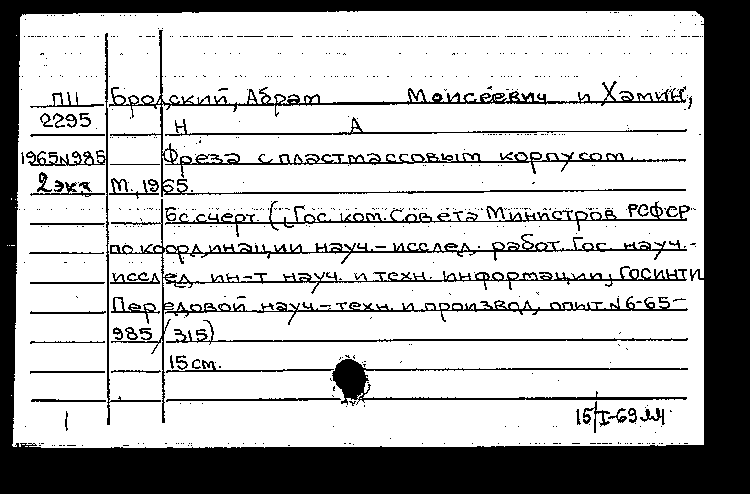 ПII Бродский, Абрам Моисеевич и Хамин,
2295 Н А
1965N985 Фреза с пластмассовым корпусом.
2экз М., 1965.
6с.счерт. (Гос. ком. Совета Министров РСФСР
по координации науч.-исслед. работ. Гос. науч.-
исслед. ин-т науч. и техн. информации, ГОСИНТИ
Передовой науч.-техн. и производ, опыт. N6-65-
985/315)
15 см.
15/I-69